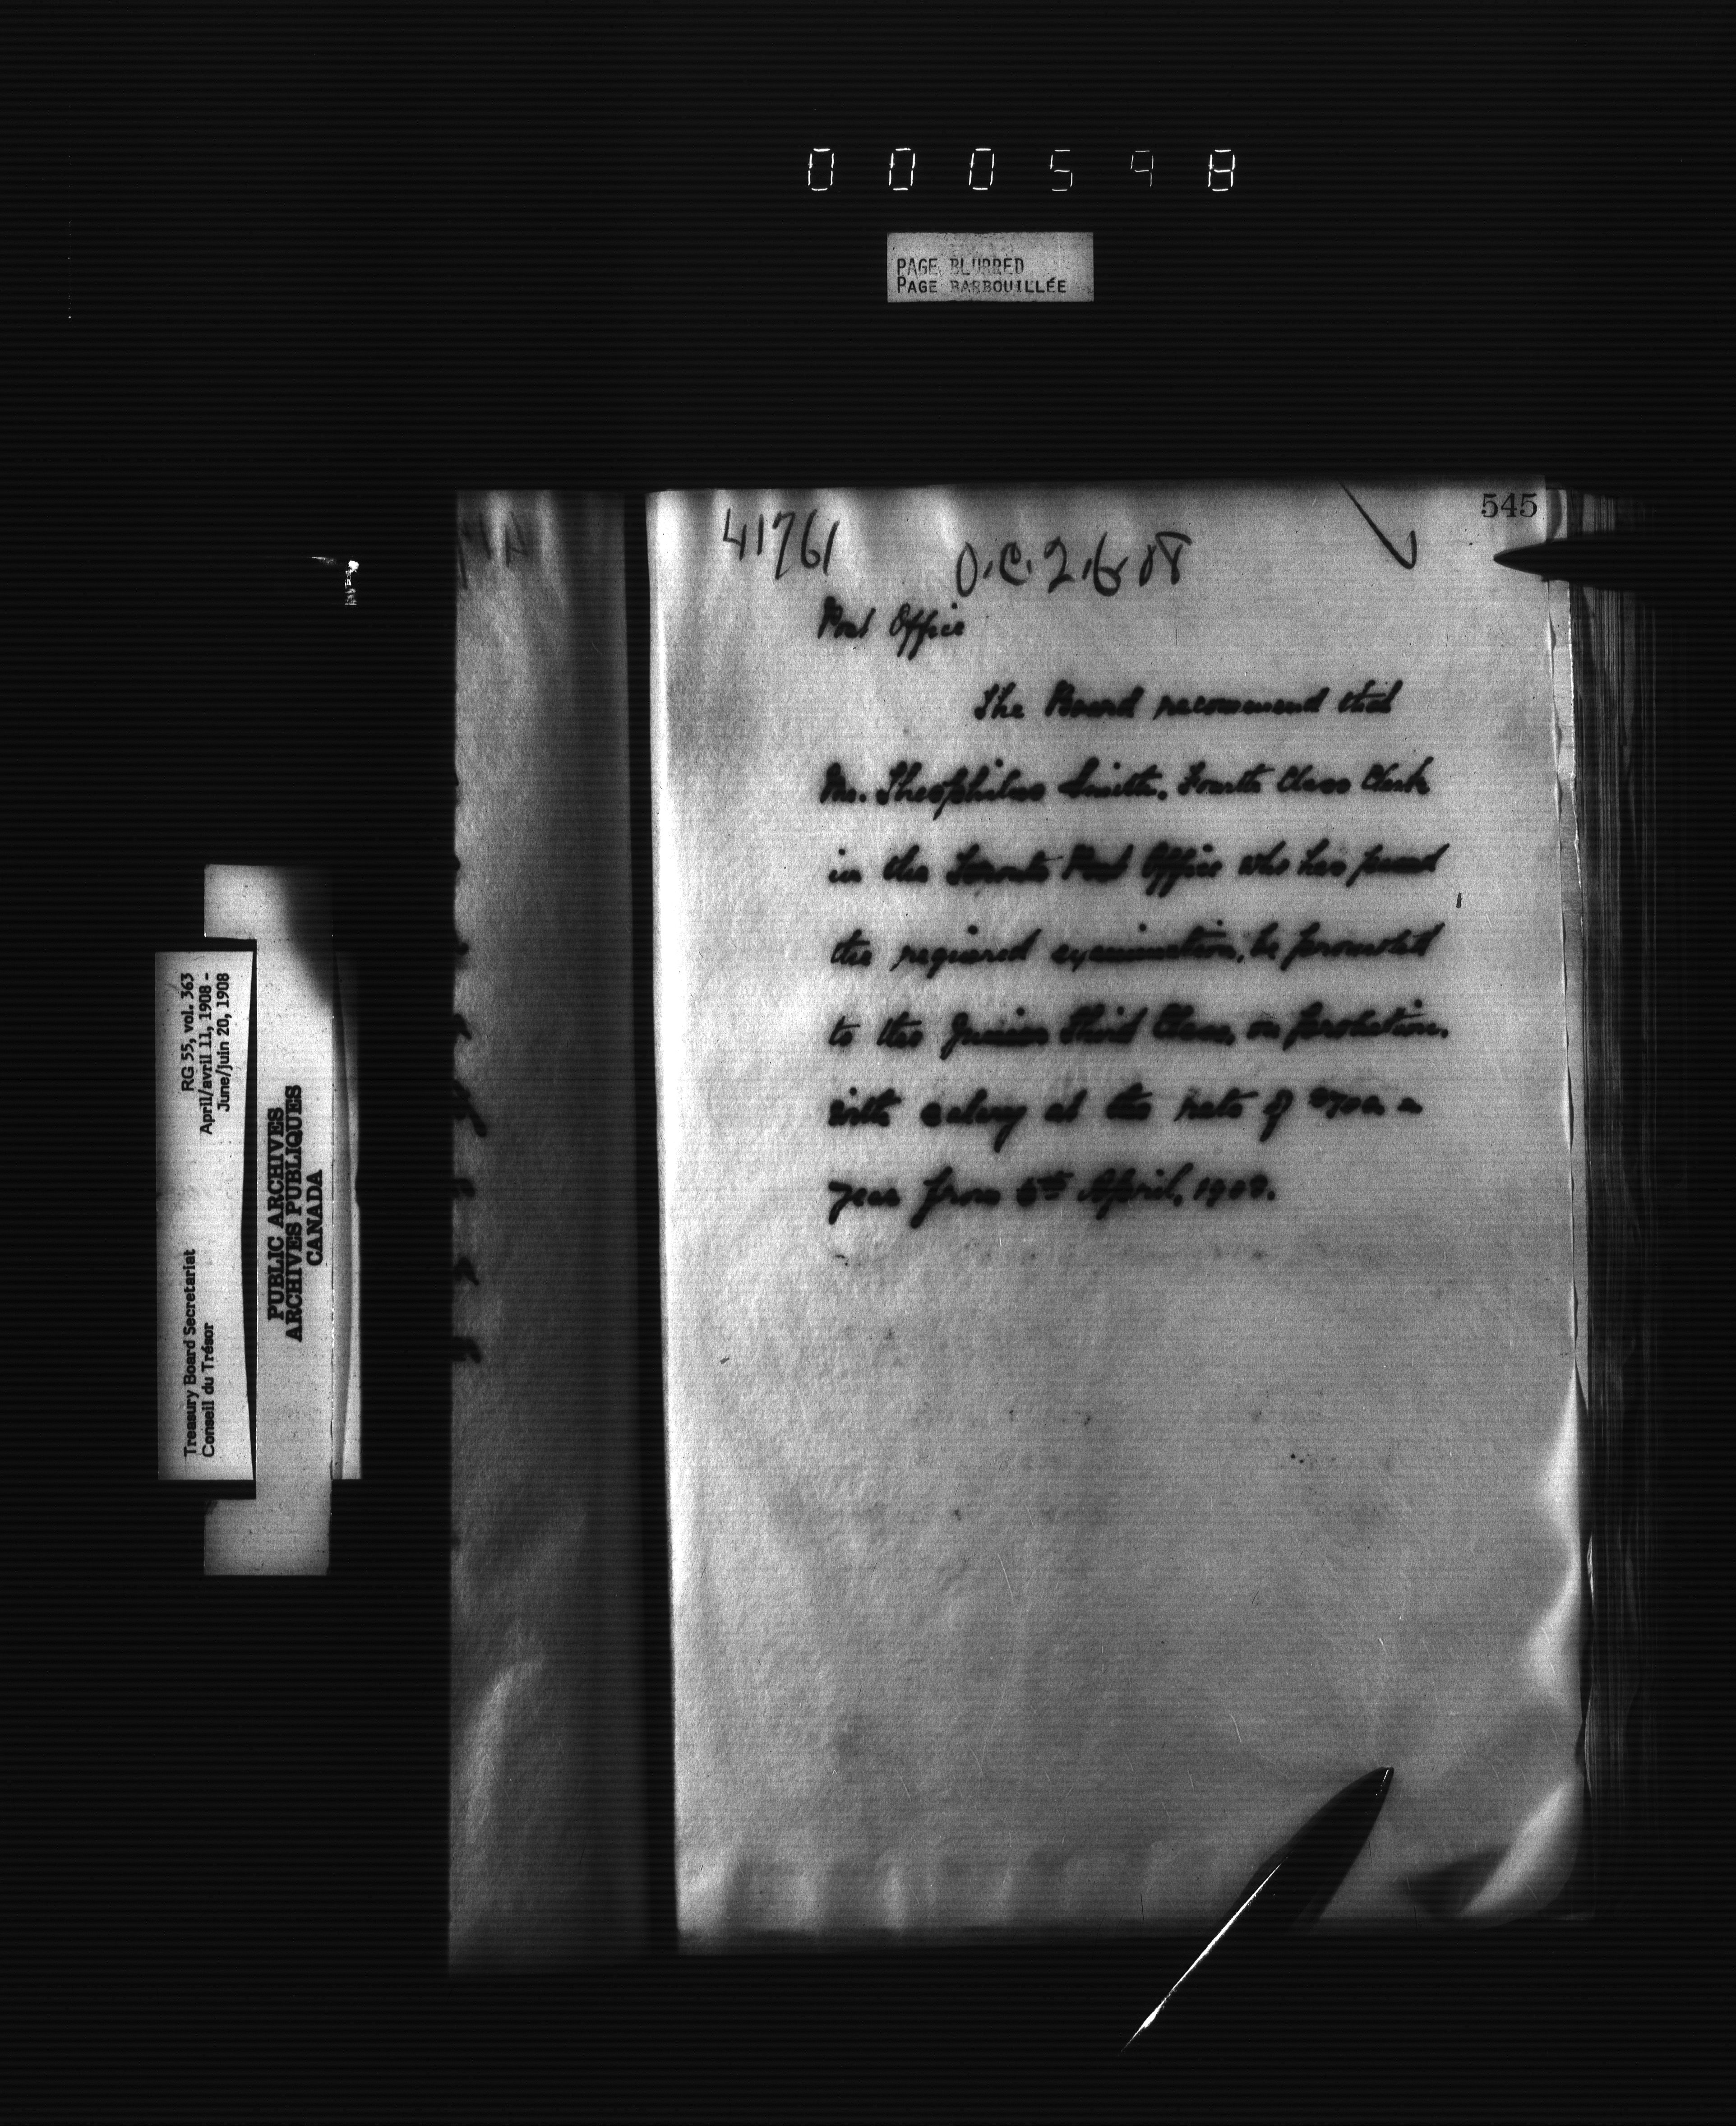 000598
PAGE BLURRED
PAGE BARBOUILLÉE
545
41761
O.C. 2.6.08
Post Office
The Board recommend that
Mr. Theophilus Smith, Fourth Class Clerk
in the Toronto Post Office who has passed
the required examination, be promoted
to the Junior Third Class, on probation,
with salary at the rate of $700 a
year from 5th April, 1908.
RG 55, vol. 363
April/avril 11, 1908 -
June/juin 20, 1908
Treasury Board Secretariat
Conseil du Trésor
PUBLIC ARCHIVES
ARCHIVES PUBLIQUES
CANADA